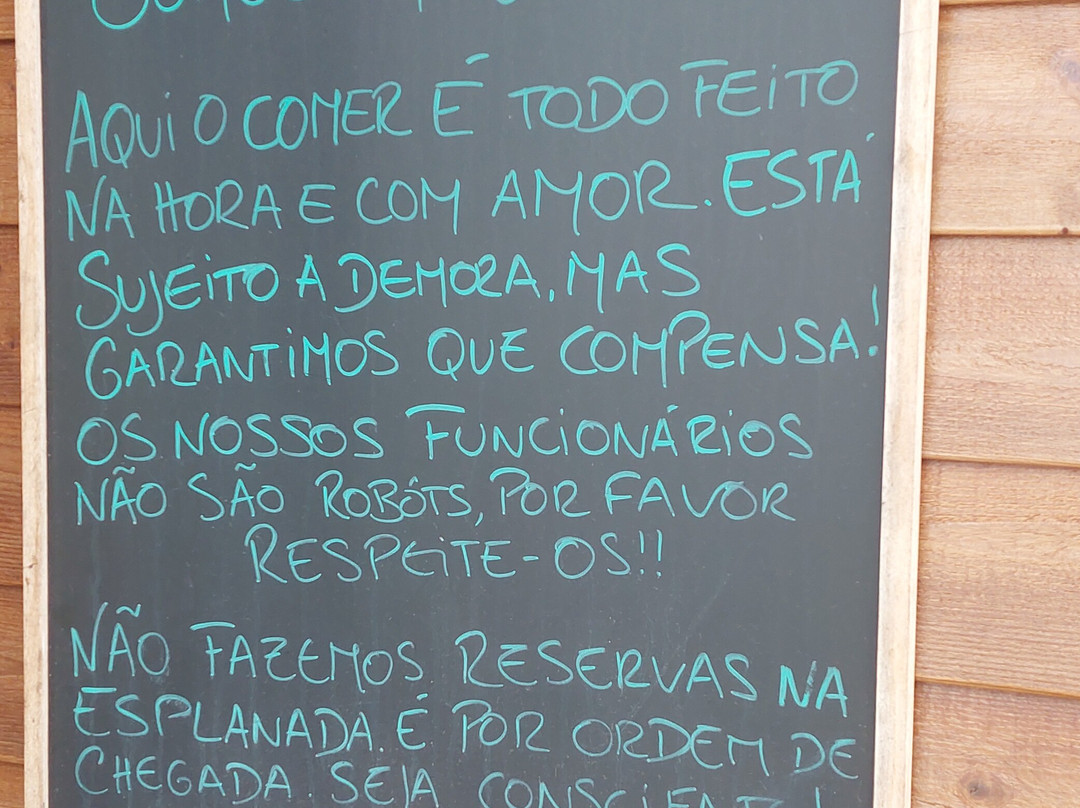 AQUI O COMER É TODO FEITO
NA HORA E COM AMOR. ESTÁ
SUJEITO A DEMORA, MAS
GARANTIMOS QUE COMPENSA!
OS NOSSOS FUNCIONÁRIOS
NÃO SÃO ROBÓTS, POR FAVOR
RESPEITE-OS!!
NÃO FAZEMOS RESERVAS NA
ESPLANADA. É POR ORDEM DE
CHEGADA. SEJA